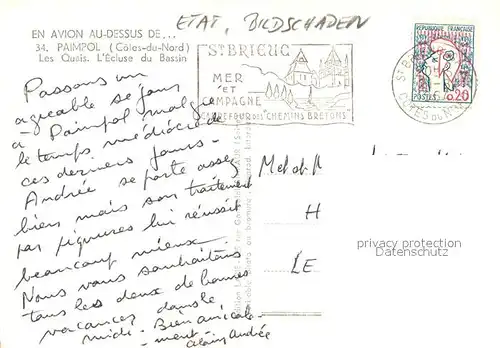 ETAT, BILDSCHADEN
EN AVION AU-DESSUS DE...
34. PAIMPOL (Côtes-du-Nord)
Les Quais. L'Écluse du Bassin
ST BRIEUC
MER
ET
CAMPAGNE
CARREFOUR DES CHEMINS BRETONS
REPUBLIQUE FRANÇAISE
POSTES 0,20
ST BRIEUC
CÔTES DU NORD
Passons un
agreable sejour
a Paimpol malgré
le temps médiocre de
ces derniers jours.
Andrée se porte assez
bien mais son traitement
par piqures lui réussit
beaucoup mieux.
Nous vous souhaitons
tous les deux de bonnes
vacances dans le
midi. Bien amicale-
ment. Alain Andrée
Met de M
H
LE
privacy protection